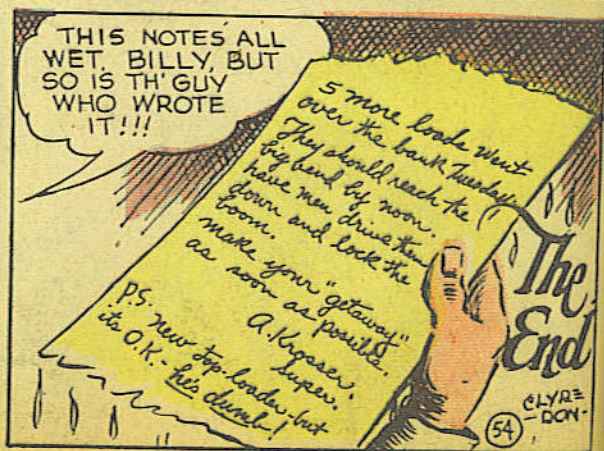 THIS NOTES ALL
WET, BILLY, BUT
SO IS TH' GUY
WHO WROTE
IT!!!
5 more loads went
over the bank Tuesday.
They should reach the
big bend by noon.
have men drive them
down and lock the
boom.
make your "getaway"
as soon as possible.
A. Krosser.
super.
P.S. new top-loader-but
its O.K.- he's dumb!
The
End
CLYDE
-DON-
54